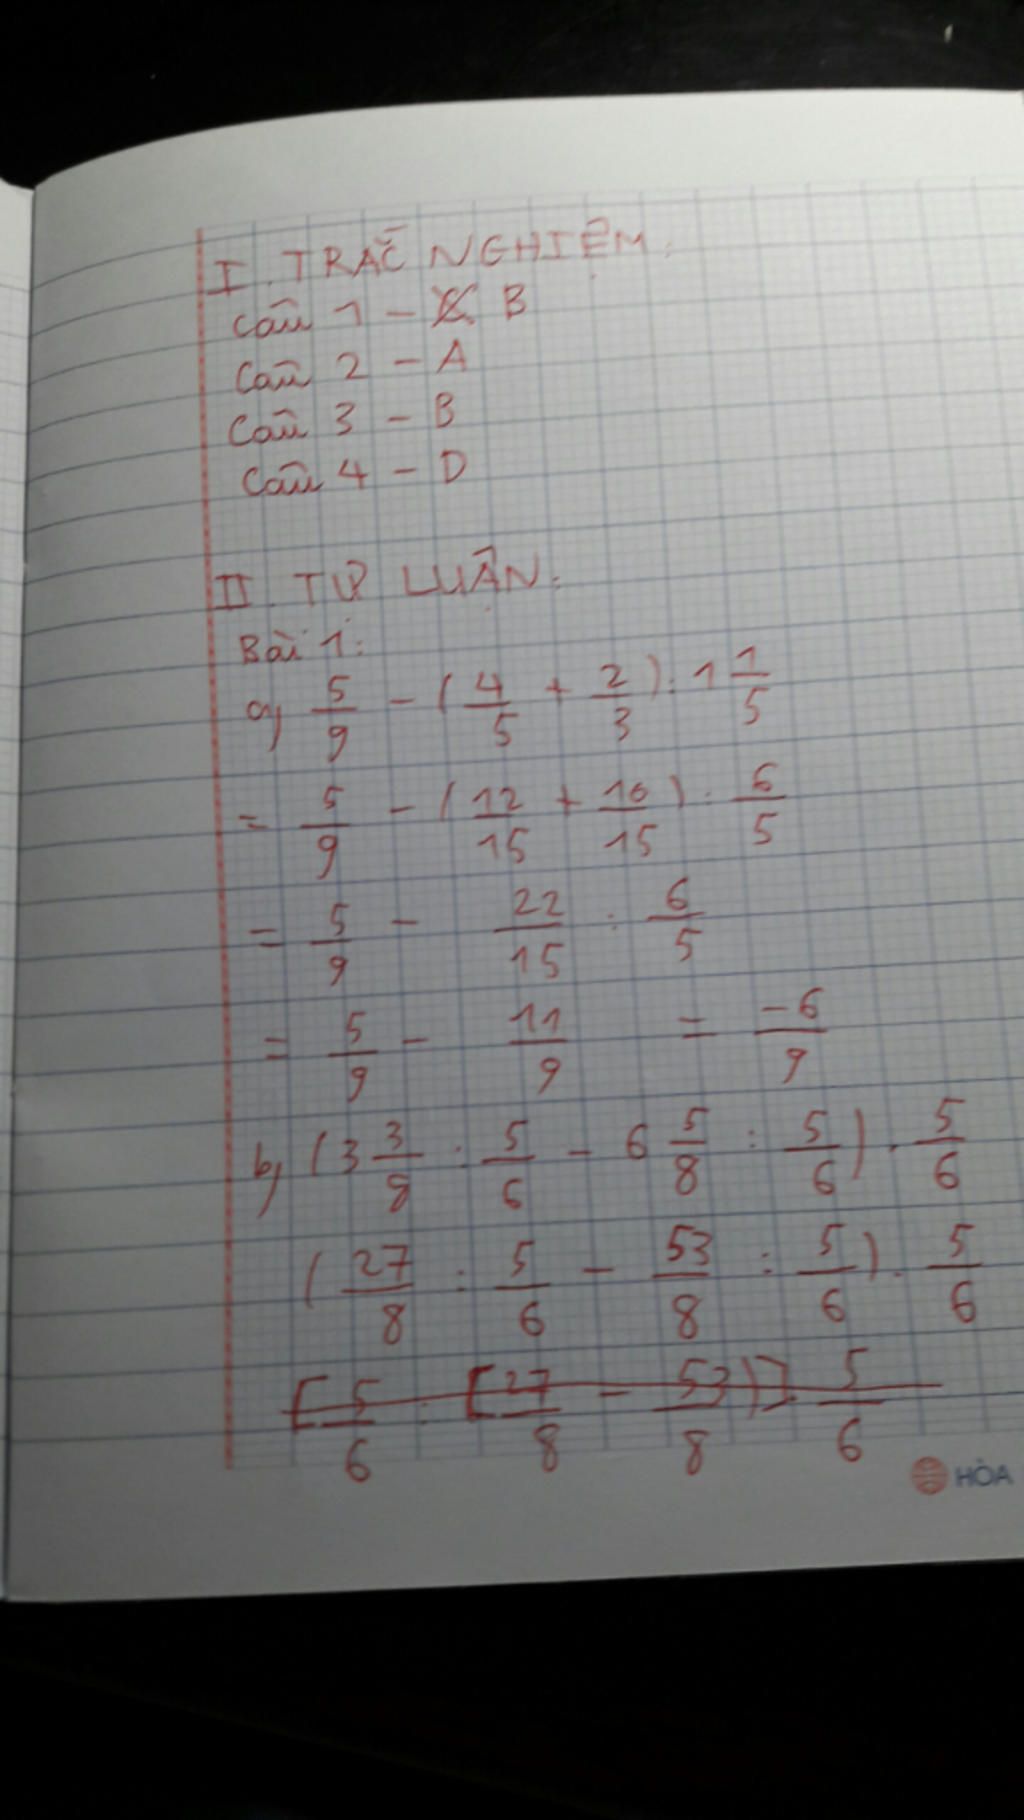 I. TRẮC NGHIỆM.
Câu 1 - B
Câu 2 - A
Câu 3 - B
Câu 4 - D
II. TỰ LUẬN.
Bài 1:
a) 5/9 - (4/5 + 2/3) : 1 1/5
= 5/9 - (12/15 + 10/15) : 6/5
= 5/9 - 22/15 : 6/5
= 5/9 - 11/9 = -6/9
b) (3 3/8 : 5/6 - 6 5/8 : 5/6) . 5/6
(27/8 : 5/6 - 53/8 : 5/6) . 5/6
[5/6 : [27/8 - 53/8)] 5/6
HÒA